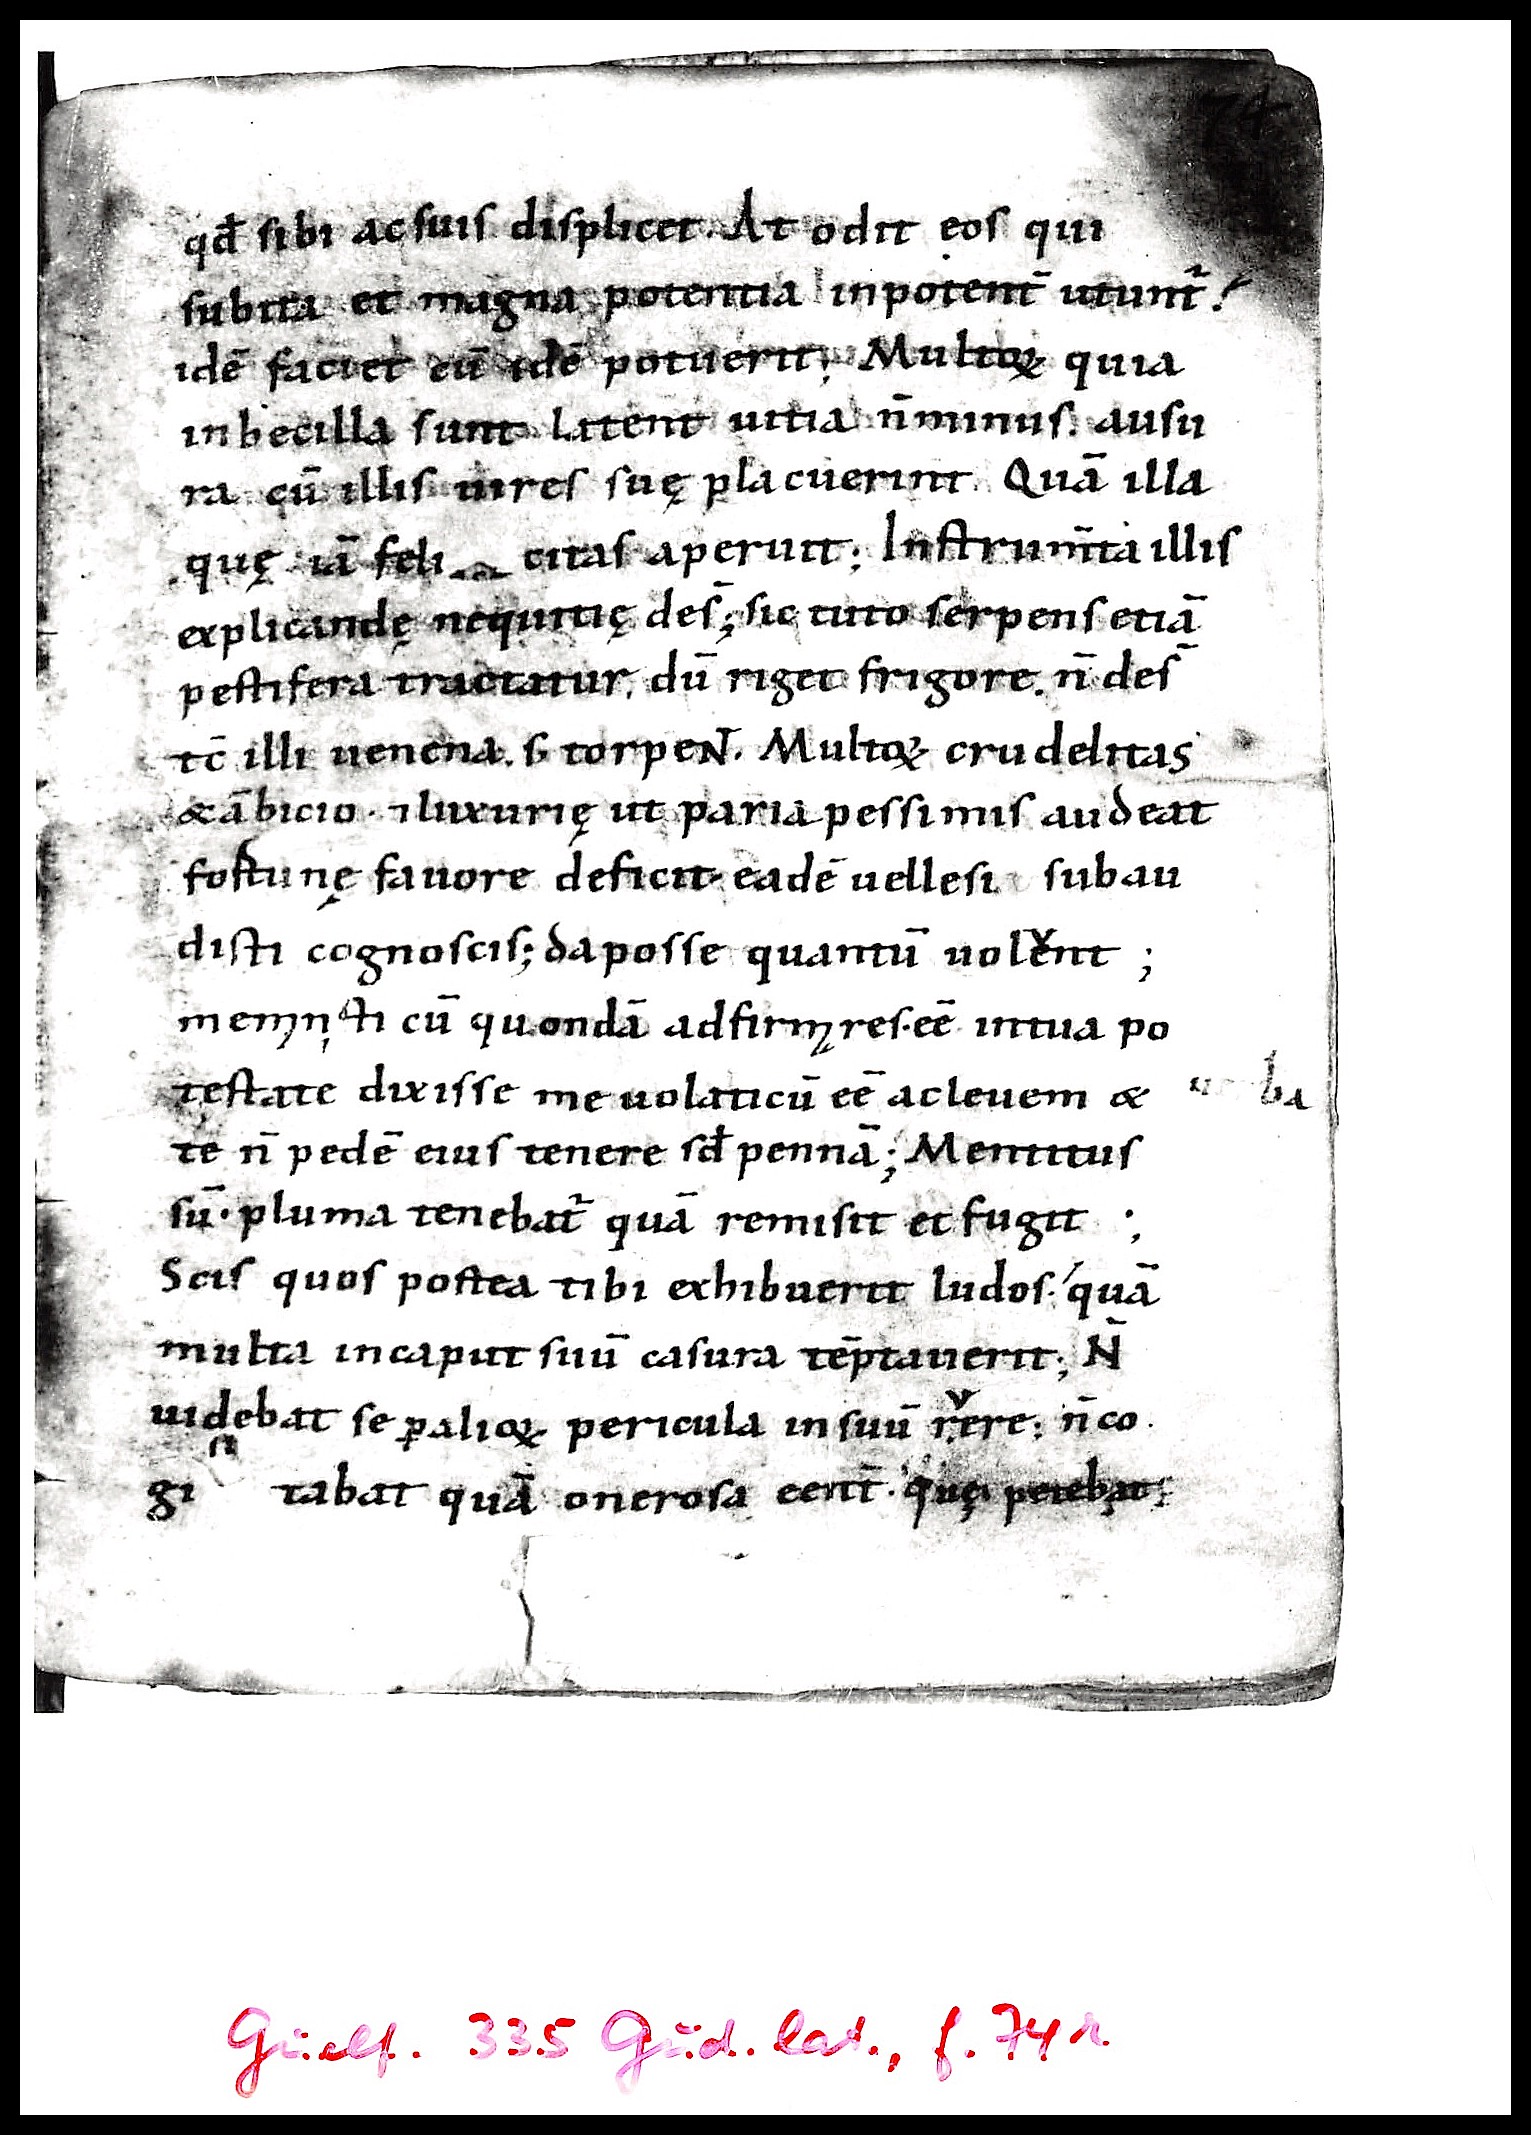 74
qđ sibi ac suis displicet. At odit eos qui
subita et magna potentia inpotent̄ utunt̄.
idē faciet cū idē potuerit; Multoꝝ quia
inbecilla sunt latent uitia n̄ minus. ausu
ra cū illis uires suę placuerint. Quā illa
quę iā feli citas aperuit; Instrum̄ta illis
explicandę nequitię des̄; sic tuto serpens etiā
pestifera tractatur, dū riget frigore. n̄ des̄
tc̄ illi uenena. ſꝫ torpeN̄. Multoꝝ crudelitas
& ābicio. ⁊ luxurię ut paria pessimis audeat
fortunę fauore deficit. eadē uelle si subau
disti cognoscis; da posse quantū uolent;
meministi cū quondā adfirmares. eē in tua po
testate dixisse me uolaticū eē ac leuem &
ba
te n̄ pedē eius tenere sđ pennā; Mentitus
sū. pluma tenebat̄ quā remisit et fugit;
Scis quos postea tibi exhibuerit ludos. quā
multa in caput suū casura tēptauerit; N̄
uidebat se ꝑ alioꝝ pericula in suū ruere; n̄ co
gi tabat quā onerosa eent̄. quę petebat;
Guelf. 335 Gud. lat., f. 74r